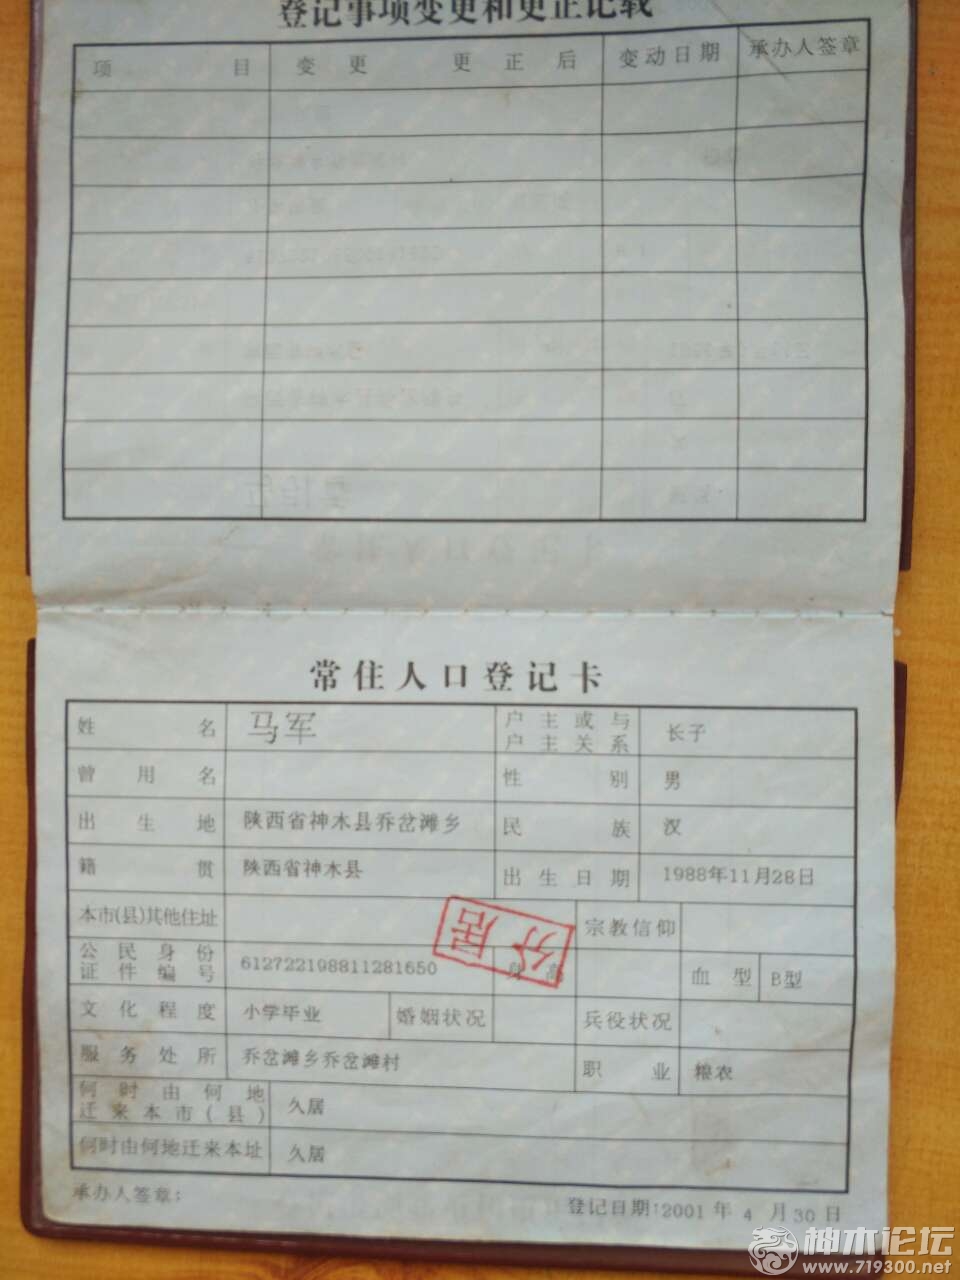 登记事项变更和更正记载
项 目 变 更 更 正 后 变动日期 承办人签章
常住人口登记卡
姓 名 马军 户主或与户主关系 长子
曾 用 名 性 别 男
出 生 地 陕西省神木县乔岔滩乡 民 族 汉
籍 贯 陕西省神木县 出生日期 1988年11月28日
本市(县)其他住址 宗教信仰
公民身份证件编号 612722198811281650 身高 血型 B型
分居
文化程度 小学毕业 婚姻状况 兵役状况
服务处所 乔岔滩乡乔岔滩村 职 业 粮农
何时由何地迁来本市(县) 久居
何时由何地迁来本址 久居
承办人签章: 登记日期:2001 年 4 月 30 日
神木论坛
www.719300.net